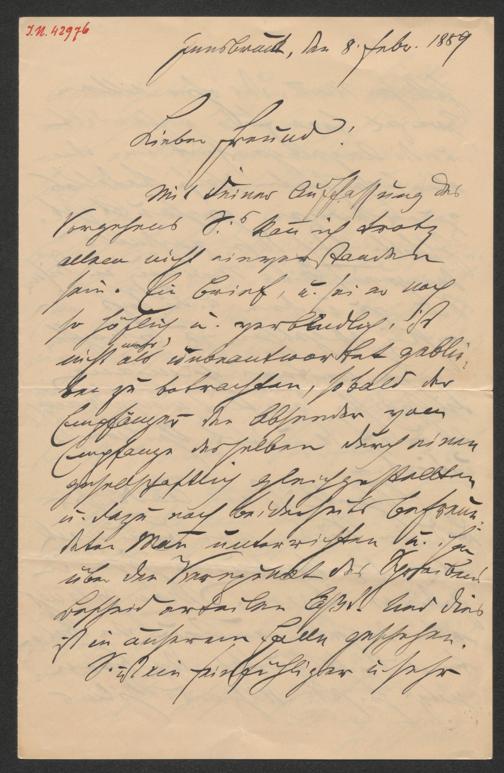 J.N. 42976
Innsbruck, den 8. Febr. 1889
Lieber Freund!
Mit Deiner Auffassung des
Vorgehens S.'s kan ich trotz
allem nicht einverstanden
sein. Ein Brief, u. sei er noch
so höflich u. verbindlich, ist
nicht mehr als unbeantwortet geblie-
ben zu betrachten, sobald der
Empfänger den Absender vom
Empfange desselben durch einen
gesellschaftlich gleichgestellten
u. dazu noch beiderseits befreun-
deten Man unterrichten u. ihn
über den Kernpunkt des Schreibens
Bescheid erteilen läßt. Und dies
ist in unserem Falle geschehen.
S. ist ein feinfühliger u. sehr